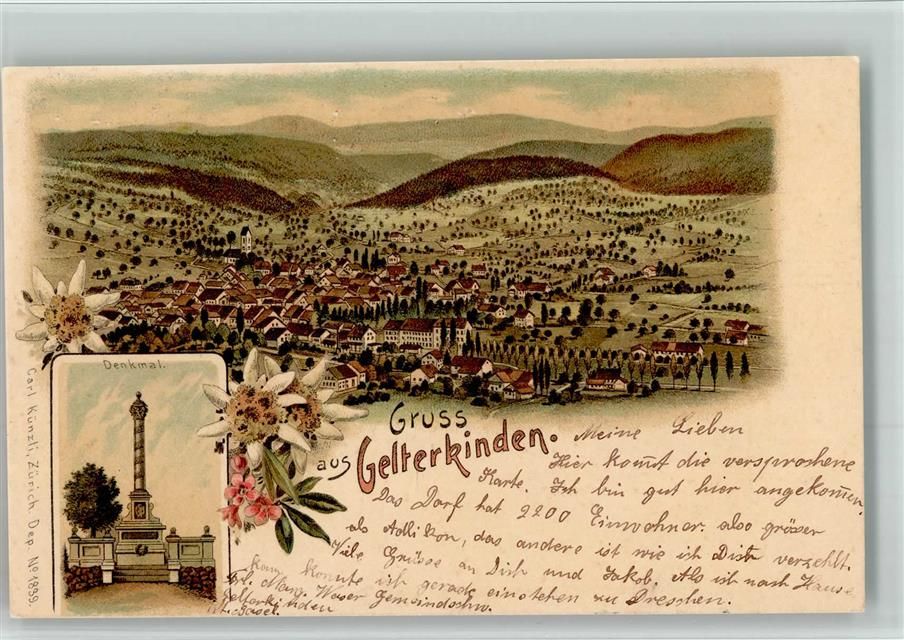 Denkmal.
Carl Künzli, Zürich. Dep. No 1839.
Gruss
aus Gelterkinden.
Meine Lieben
Hier kom̄t die versprochene
Karte. Ich bin gut hier angekom̄en.
Das Dorf hat 2200 Einwohner. also grösser
als, das andere ist wie ich Dir verzehlt.
Viele Grüsse an Dich und Jakob. Als ich nach Hause
kam konnte ich gerade einstehen zu Dreschen.
Frl. Marg. Waser Gemeindschw.
Gelterkinden